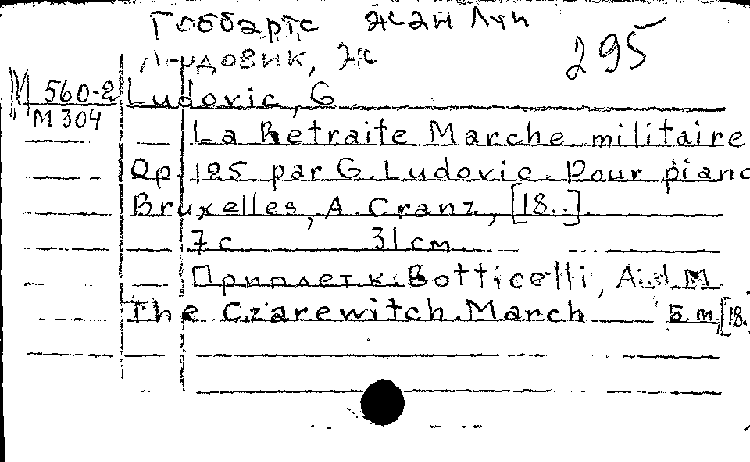 Гоббартс Жан Луи
Людовик, Ж
295
М 560-2
М 304
Ludovic, G
La Retraite Marche militaire
Op. 125 par G. Ludovic. Pour piano
Bruxelles, A. Cranz, [18..].
7 с 31 см.
Приплет к: Botticelli, A. d. M
The Czarewitch March Б м, [18.